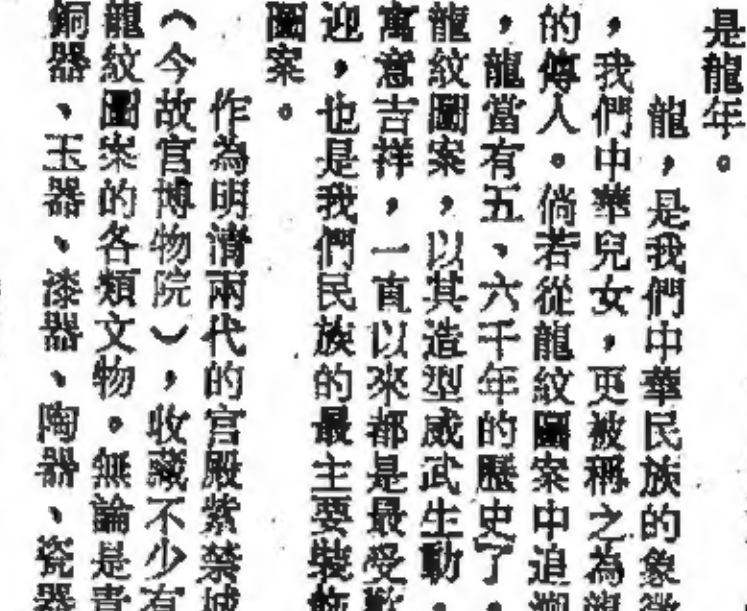 是龍年。
龍，是我們中華民族的象徵
，我們中華兒女，更被稱之為龍
的傳人。倘若從龍紋圖案中追溯
，龍當有五、六千年的歷史了。
龍紋圖案，以其造型威武生動，
寓意吉祥，一直以來都是最受歡
迎，也是我們民族的最主要裝飾
圖案。
作為明清兩代的宮殿紫禁城
（今故宮博物院），收藏不少有
龍紋圖案的各類文物。無論是青
銅器、玉器、漆器、陶器、瓷器